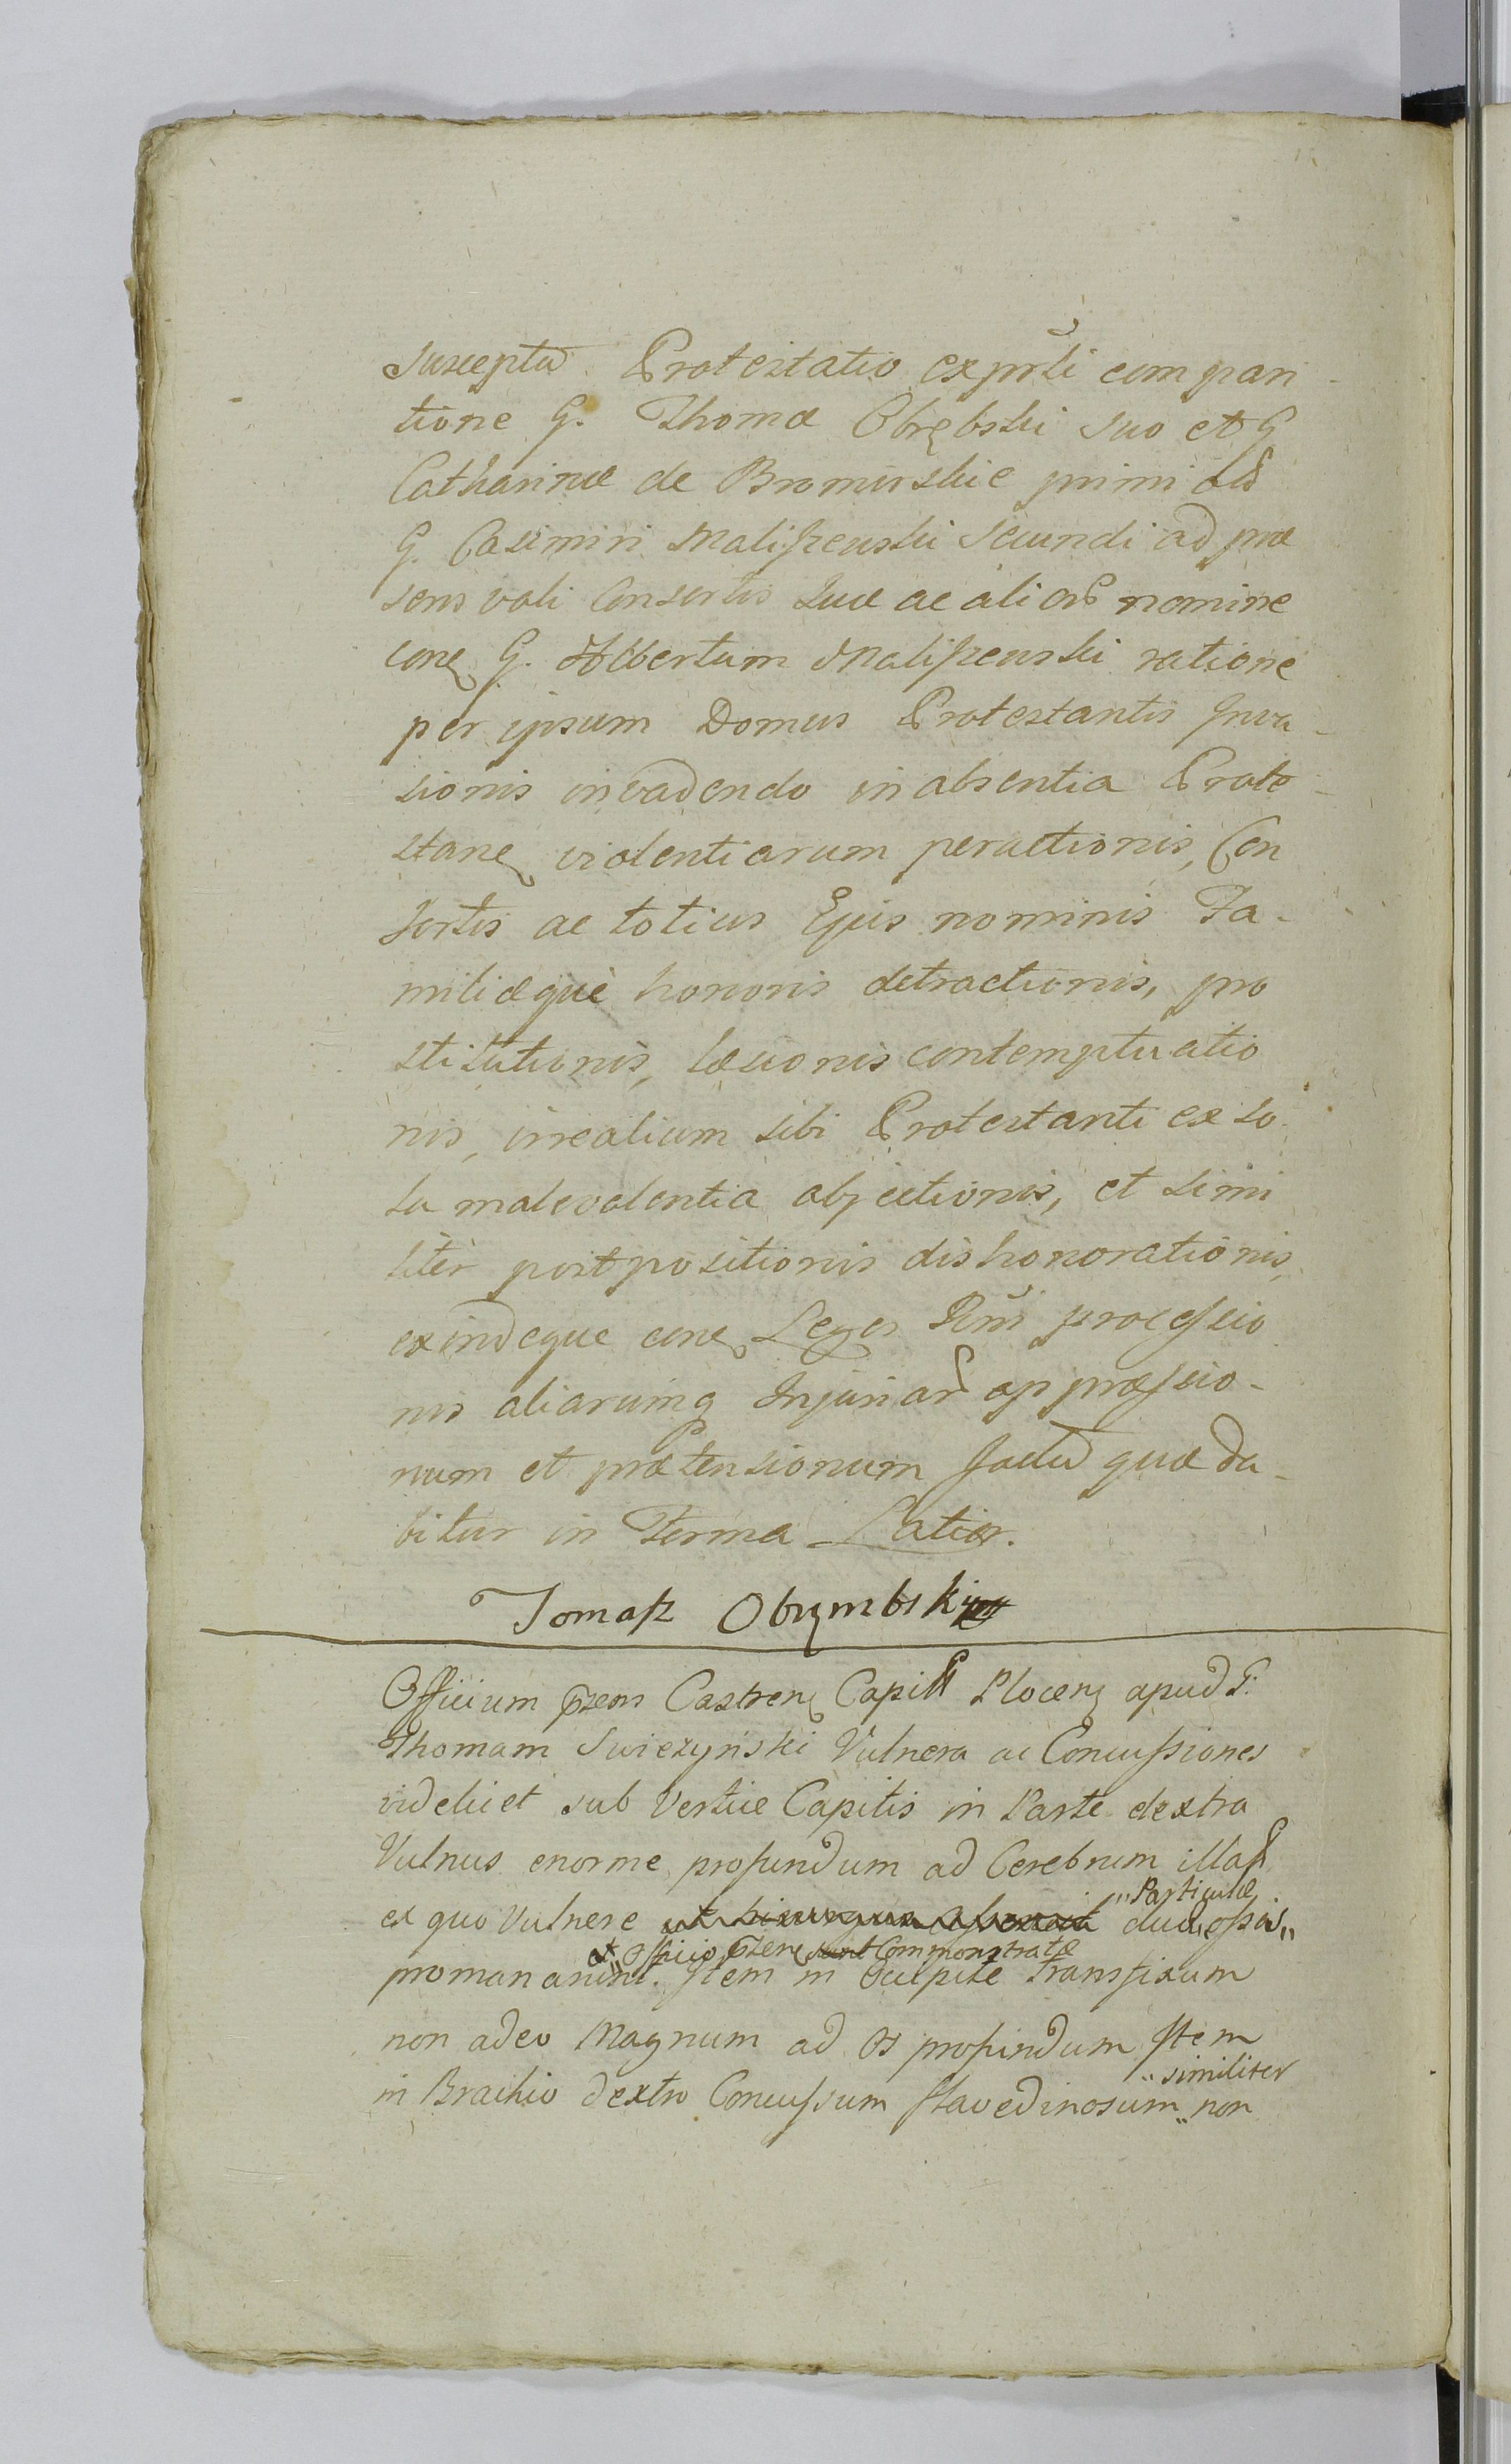 Suscepta Protestatio ex prsti compari
tione G. Thomæ Obrębski suo et G
Catharinæ de Bromirskie primi
G. Casimiri Maliszewski Secundi ad præ
sens voti Consortis suæ ac alior nomine
conę G. Albertum Maliszewski ratione
per ipsum Domus Protestantis Inva-
sionis invadendo in absentia Prote-
stanę violentiarum peractionis, Con
sortis ac totius Ejus nominis Fa-
miliæquè honoris detractionis, pro
stitutionis, læsionis contemptuatio
nis, irrealium sibi Protestanti ex so
la malevolentia objectionis, et simi
litèr postpositionis dishonorationis,
exindeque conę Leges Rni processio
nis aliarumq Injuriar oppressio-
num et prætensionum facta quæ da-
bitur in Forma Latior.
Tomasz Obrymbski
Officium prsens Castrenę Capitl Plocenę apud G.
Thomam Swiezyński Vulnera ac Concussiones
videlicet sub Vertice Capitis in Parte dextra
Vulnus enorme profundum ad Cerebrum illat
"Particulæ
ex quo Vulnere ut chirurgus asseruit duæ ossis"
et Officio prsenę sunt Commonstratæ
promananint. Item in Occipite transfixum
non adeo Magnum ad Os profundum Item
"similiter
in Brachio dextro Concussum flavedinosum" non